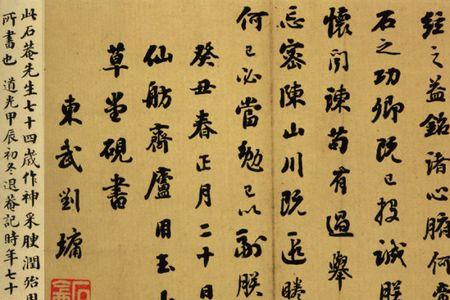 經之益銘諸心腑何啻
石之功卿既已投誠朕
懷聞諫苟有過舉
忘密陳山川既遐睠
何已必當勉已以副朕
癸丑春正月二十日
仙舫齋廬用玉
草堂硯書
東武劉墉
此石菴先生七十四歲作神采腴潤殆用
所書也 道光甲辰初冬退菴記時年七十